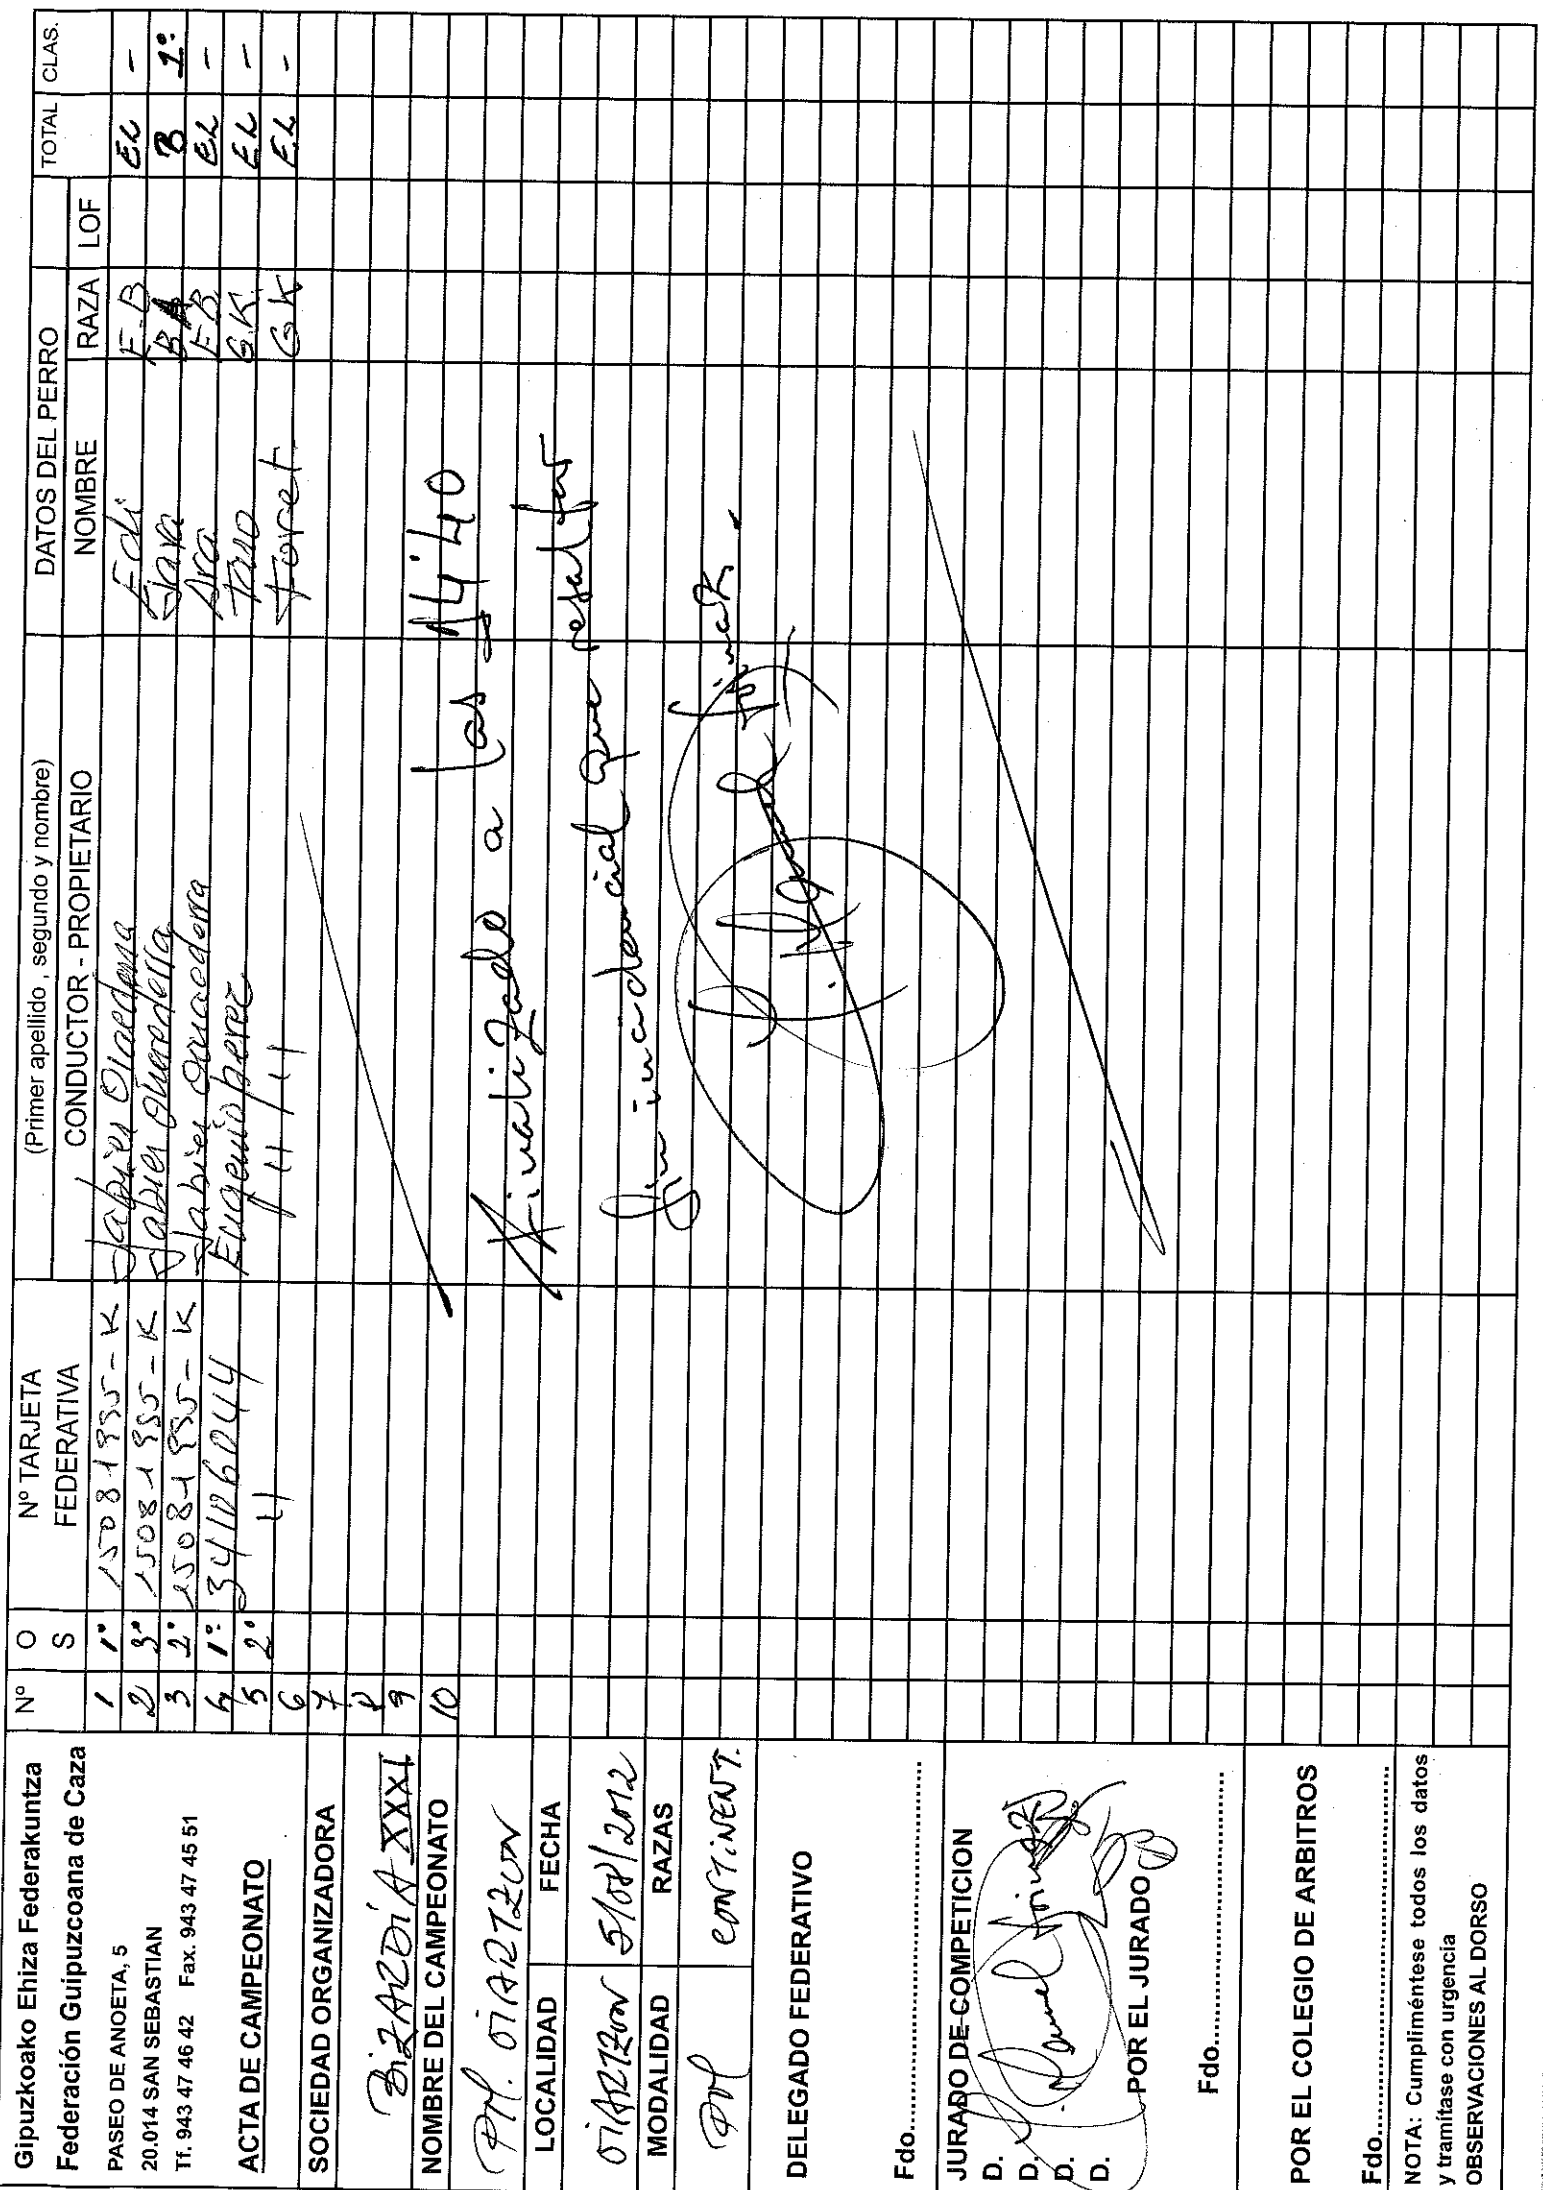 Gipuzkoako Ehiza Federakuntza
Federación Guipuzcoana de Caza
PASEO DE ANOETA, 5
20.014 SAN SEBASTIAN
Tf. 943 47 46 42 Fax. 943 47 45 51
ACTA DE CAMPEONATO
SOCIEDAD ORGANIZADORA
BiZARDiA XXXI
NOMBRE DEL CAMPEONATO
PM. OiARTZUN
LOCALIDAD FECHA
OiARTZUN 5/08/2012
MODALIDAD RAZAS
PM CONTiNENT.
DELEGADO FEDERATIVO
Fdo.
JURADO DE COMPETICION
D.
D. Manuel
D.
D.
POR EL JURADO
Fdo.
POR EL COLEGIO DE ARBITROS
Fdo.
NOTA: Cumpliméntese todos los datos
y tramítase con urgencia
OBSERVACIONES AL DORSO
Nº O S Nº TARJETA FEDERATIVA (Primer apellido , segundo y nombre) CONDUCTOR - PROPIETARIO DATOS DEL PERRO TOTAL CLAS.
NOMBRE RAZA LOF
1 1º 15081995-K Jabier Edi E.B EL -
2 3º 15081995-K Jabier B A B 1º
3 2º 15081995-K Jabier Ara E.B EL -
4 1º 34106044 Eugenio perez G.K. EL -
5 2º " " / " Foret G K EL -
6
7
8
9
10
Finalizado a las 14'40
Sin incidencial que resaltar
Manuel